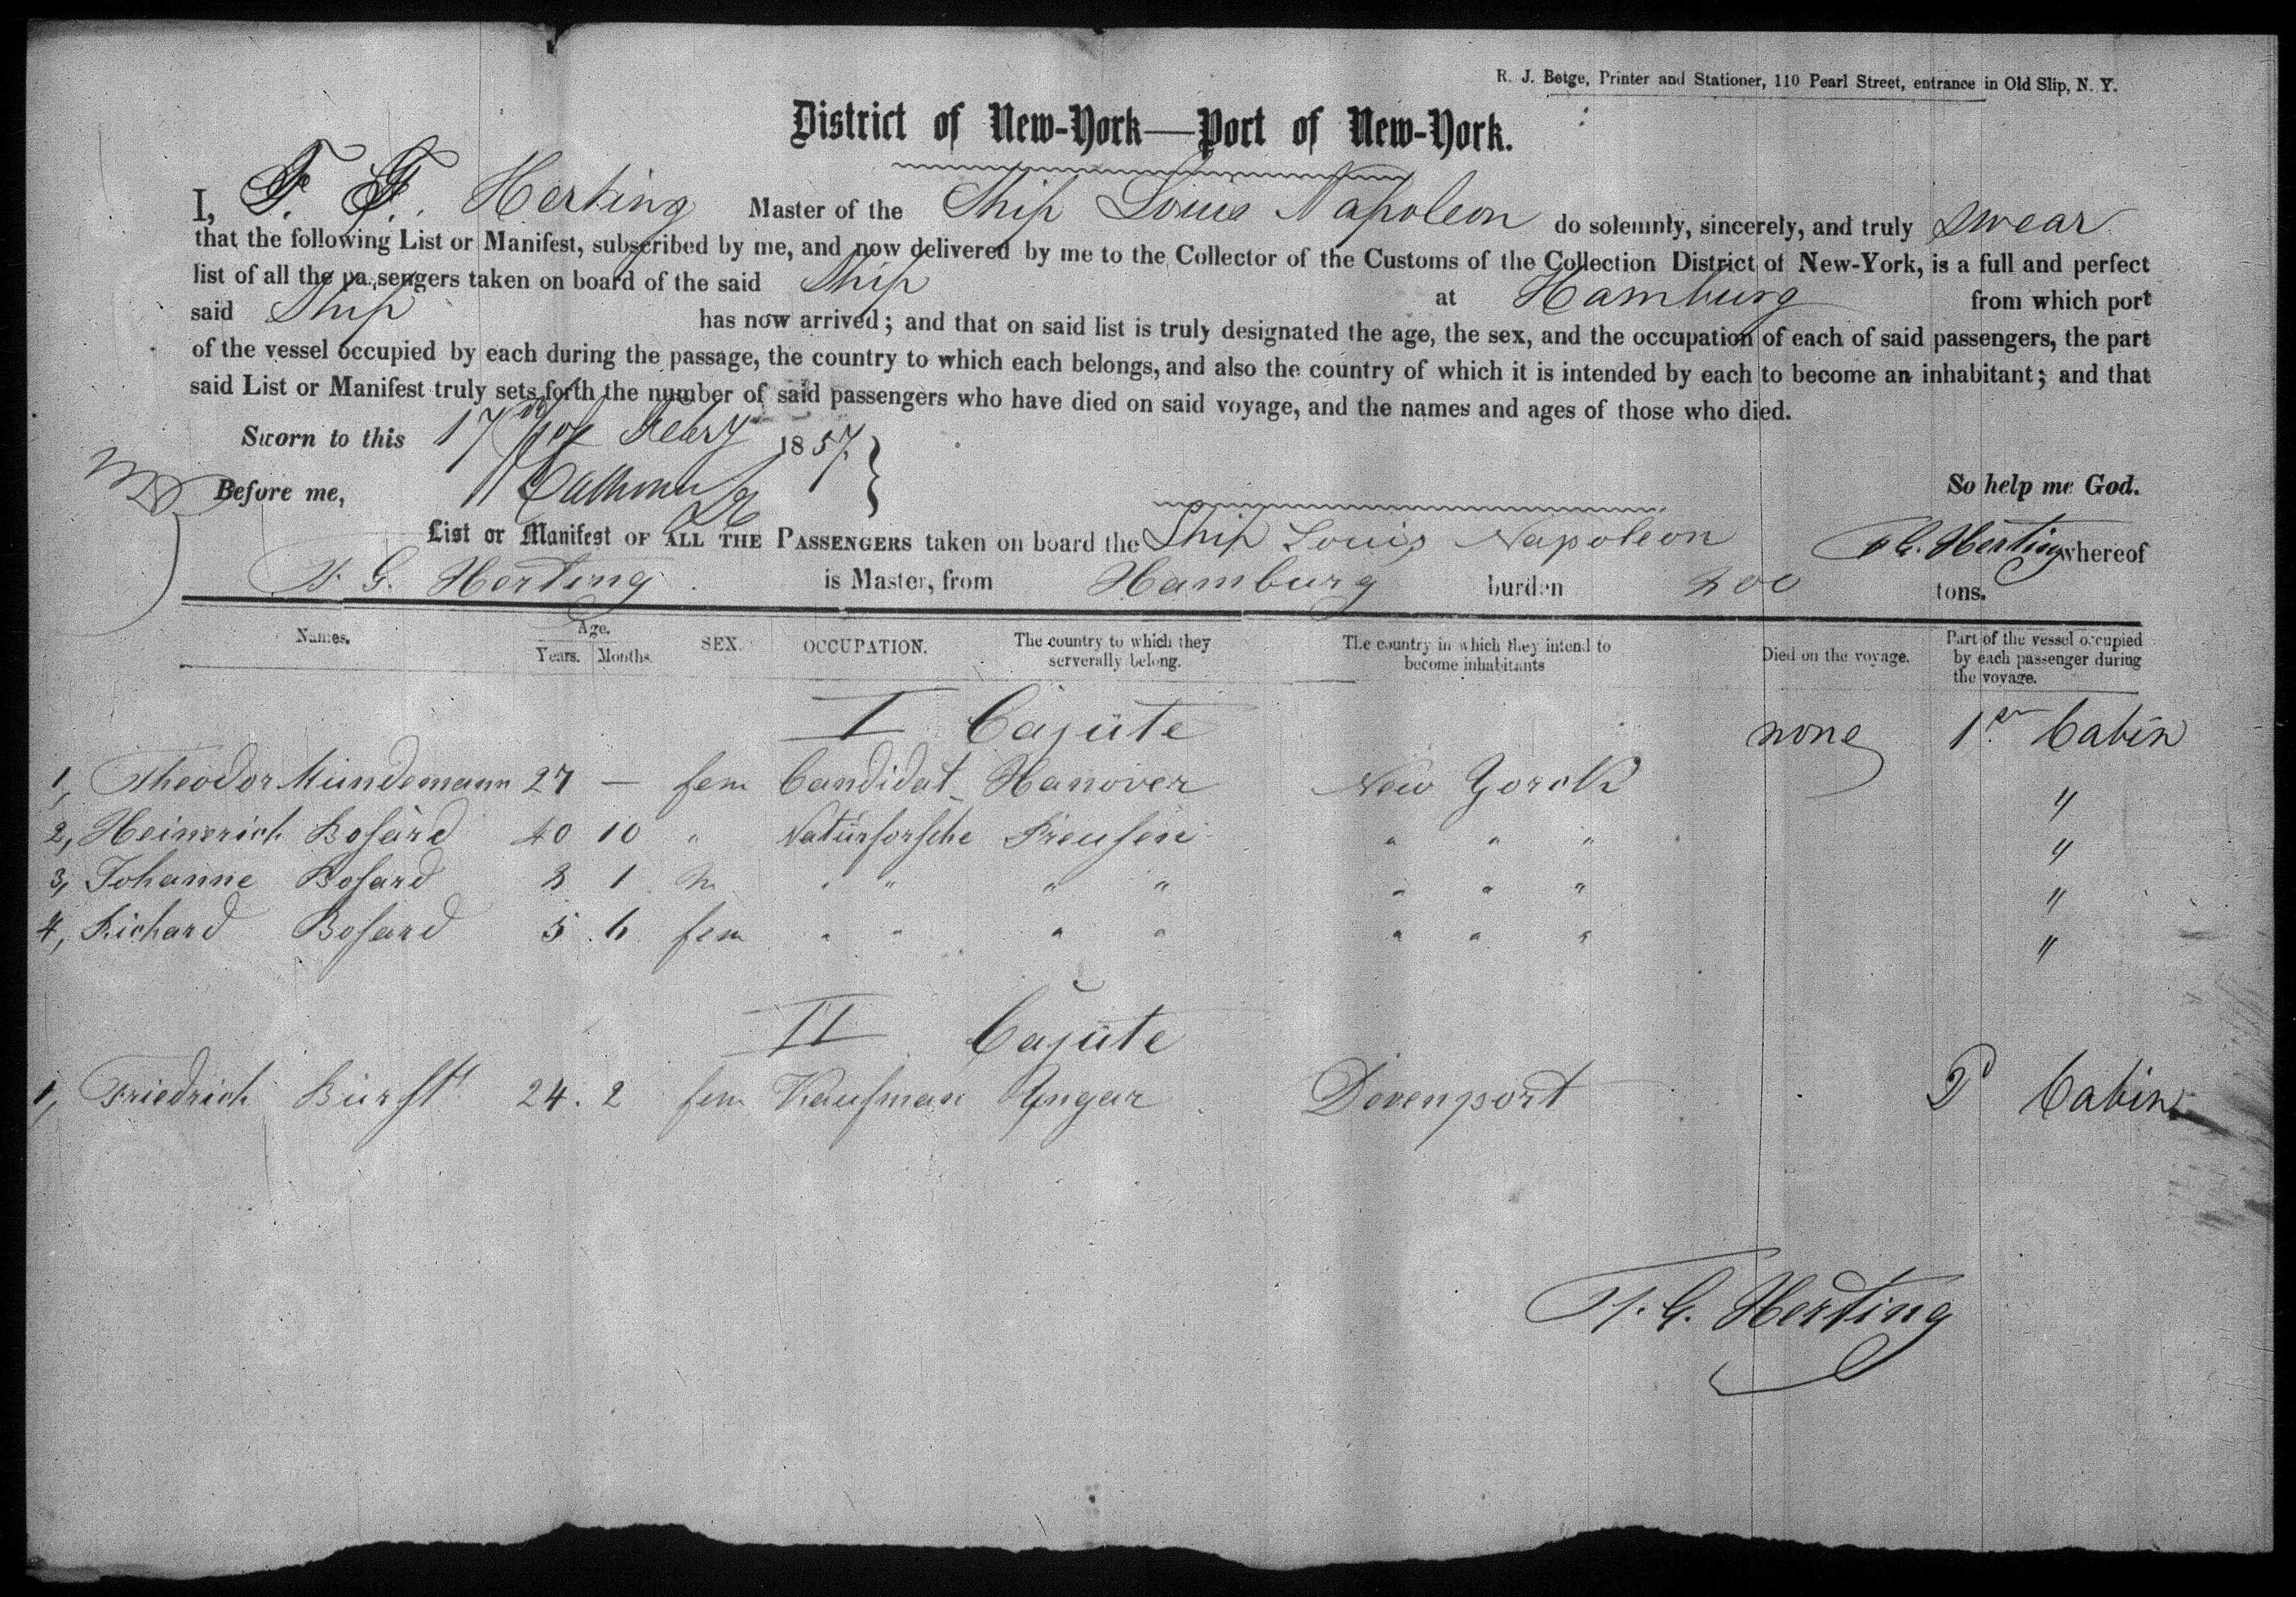 R. J. Betge, Printer and Stationer, 110 Pearl Street, entrance in Old Slip, N. Y.
District of New-York—Port of New-York.
I, F. G. Herting Master of the Ship Louis Napoleon do solemnly, sincerely, and truly swear
that the following List or Manifest, subscribed by me, and now delivered by me to the Collector of the Customs of the Collection District of New-York, is a full and perfect
list of all the passengers taken on board of the said Ship at Hamburg from which port
said Ship has now arrived; and that on said list is truly designated the age, the sex, and the occupation of each of said passengers, the part
of the vessel occupied by each during the passage, the country to which each belongs, and also the country of which it is intended by each to become an inhabitant; and that
said List or Manifest truly sets forth the number of said passengers who have died on said voyage, and the names and ages of those who died.
Sworn to this 17 Febry 1857.
So help me God.
Before me,
List or Manifest OF ALL THE PASSENGERS taken on board the Ship Louis Napoleon F. G. Herting whereof
F. G. Herting is Master, from Hamburg burden 200 tons.
Names. Age. Years. Months. SEX. OCCUPATION. The country to which they serverally belong. The country in which they intend to become inhabitants Died on the voyage. Part of the vessel occupied by each passenger during the voyage.
I Cajüte none 1st Cabin
1, Theodor Mündemann 27 — fem Candidat Hanover New Yorck "
2, Heinerich Bosard 40 10 " Natürforsche Preusen " " " "
3, Johanne Bosard 3 1 m " " " " " " " "
4, Richard Bosard 5. 6 fem " " " " " " " "
II Cajüte
1, Friedrich Bürst 24. 2 fem Kaufman Ungar Davenport 2d Cabin
F. G. Herting